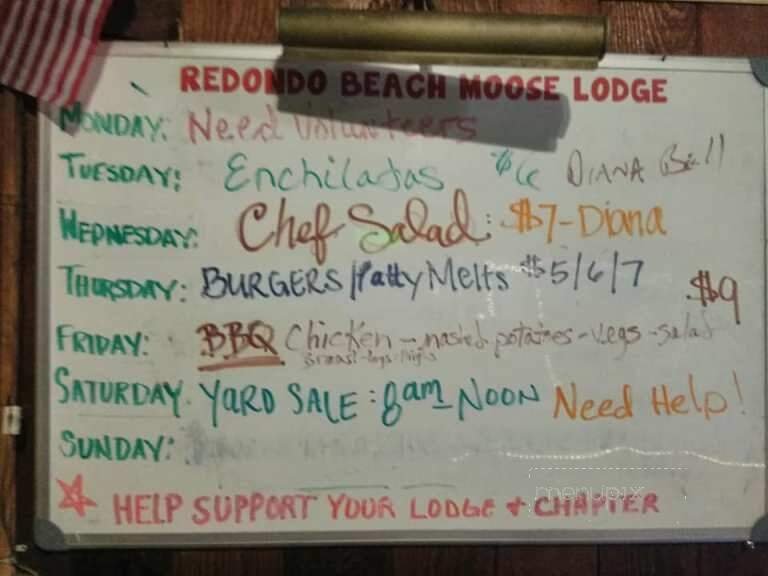 REDONDO BEACH MOOSE LODGE
MONDAY: Need Volunteers
TUESDAY: Enchiladas $6 DIANA Bill
WEDNESDAY: Chef Salad: $7-Diana
THURSDAY: BURGERS/Patty Melts $5/6/7
$9
FRIDAY: BBQ Chicken - mashed potatoes - vegs - salad
Breast-legs-thighs
SATURDAY. YARD SALE: 8am - NOON Need Help!
SUNDAY:
HELP SUPPORT YOUR LODGE + CHAPTER
menupix